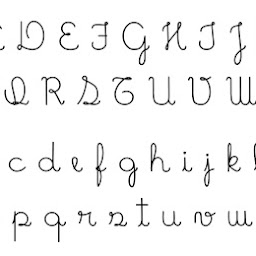 D E F G H I J
Q R S T U V W
c d e f g h i j k
p q r s t u v w